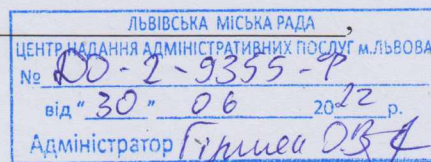 ЛЬВІВСЬКА МІСЬКА РАДА
ЦЕНТР НАДАННЯ АДМІНІСТРАТИВНИХ ПОСЛУГ м.ЛЬВОВА
№ 2-9355-
від "30" 06 2022 р.
Адміністратор